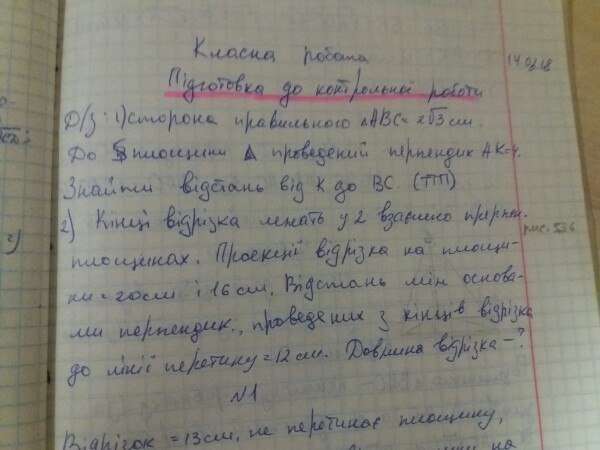 Класна робота
14.03.18
Підготовка до контрольної роботи
Д/з: 1) Сторона правильного △ABC = 2√3 см.
До площини △ проведений перпендик AK=4.
Знайти відстань від K до BC. (ТТП)
2) Кінці відрізка лежать у 2 взаємно перпен.
площинах. Проекції відрізка на площи-
ни = 20см і 16 см. Відстань між основа-
ми перпендик., проведених з кінців відрізка
до лінії перетину = 12 см. Довжина відрізка - ?
N1
Відрізок = 13см, не перетинає площину,
на